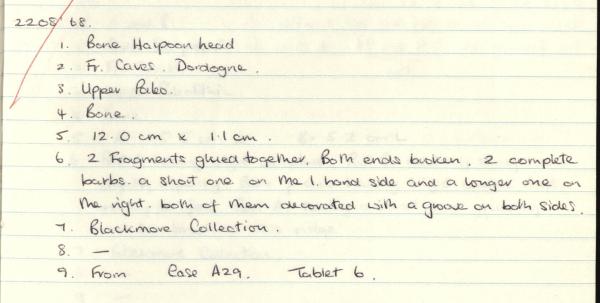 2208'68.
1. Bone Harpoon head
2. Fr. Caves. Dordogne.
3. Upper Paleo.
4. Bone.
5. 12.0 cm x 1.1 cm.
6. 2 Fragments glued together. Both ends broken. 2 complete
barbs. a short one on the l. hand side and a longer one on
the right. both of them decorated with a groove on both sides.
7. Blackmore Collection.
8. —
9. From Case A29. Tablet 6.